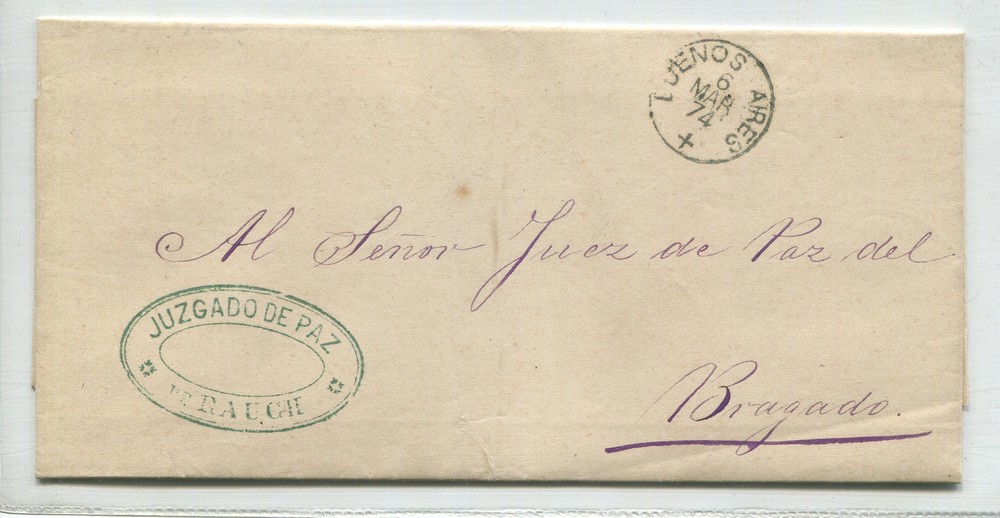 BUENOS AIRES
6
MAR
74
Al Señor Juez de Paz del
Bragado.
JUZGADO DE PAZ
DE RAUCH